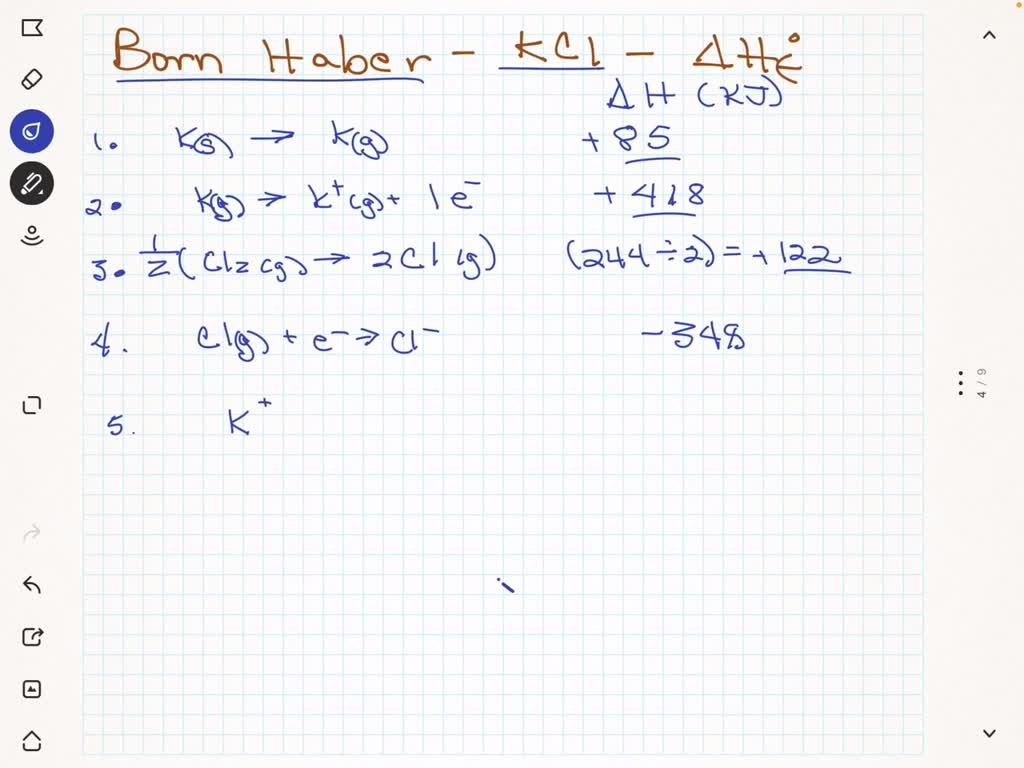 Born Haber - KCl - ΔHf°
ΔH (KJ)
1. K(s) → K(g) +85
2. K(g) → K⁺(g) + 1e⁻ +418
3. 1/2 (Cl2(g) → 2Cl(g)) (244 ÷ 2) = +122
4. Cl(g) + e⁻ → Cl⁻ -348
5. K⁺
4 / 9